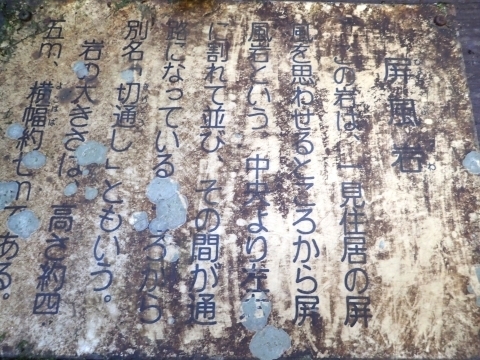 屏風岩
この岩は、一見住居の屏
風を思わせるところから屏
風岩という。中央より左右
に割れて並び、その間が通
路になっている ろから
別名「切通し」ともいう。
岩の大きさは、高さ約四
五m、横幅約七mである。